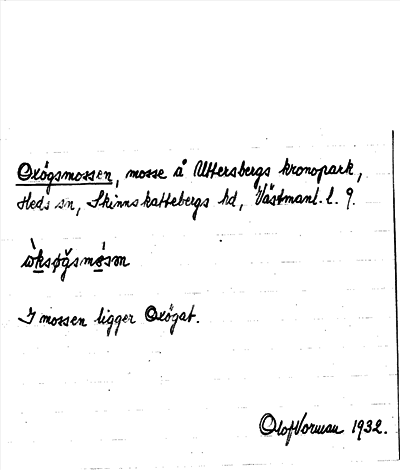 Oxögsmossen, mosse å Uttersbergs kronopark,
Heds sn, Skinnskattebergs hd, Västmanl. l. 9.
ὼksøğsmòsɷn
I mossen ligger Oxögat.
Olof Vorman 1932.